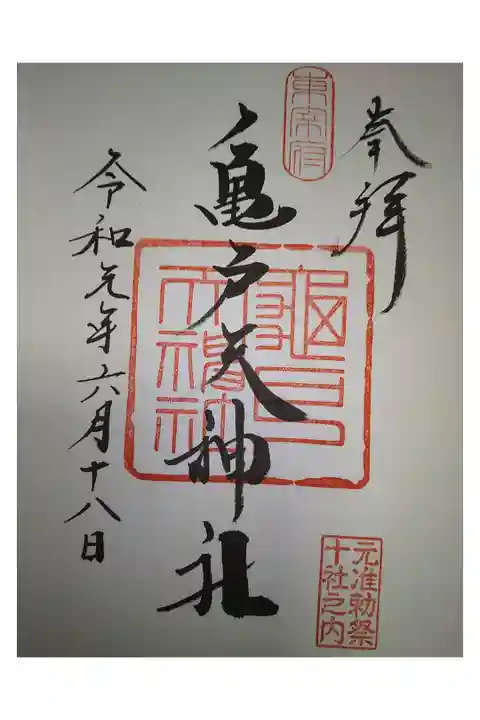 奉拝
元准勅祭
十社之内
東宰府
亀戸天神社
令和元年六月十八日